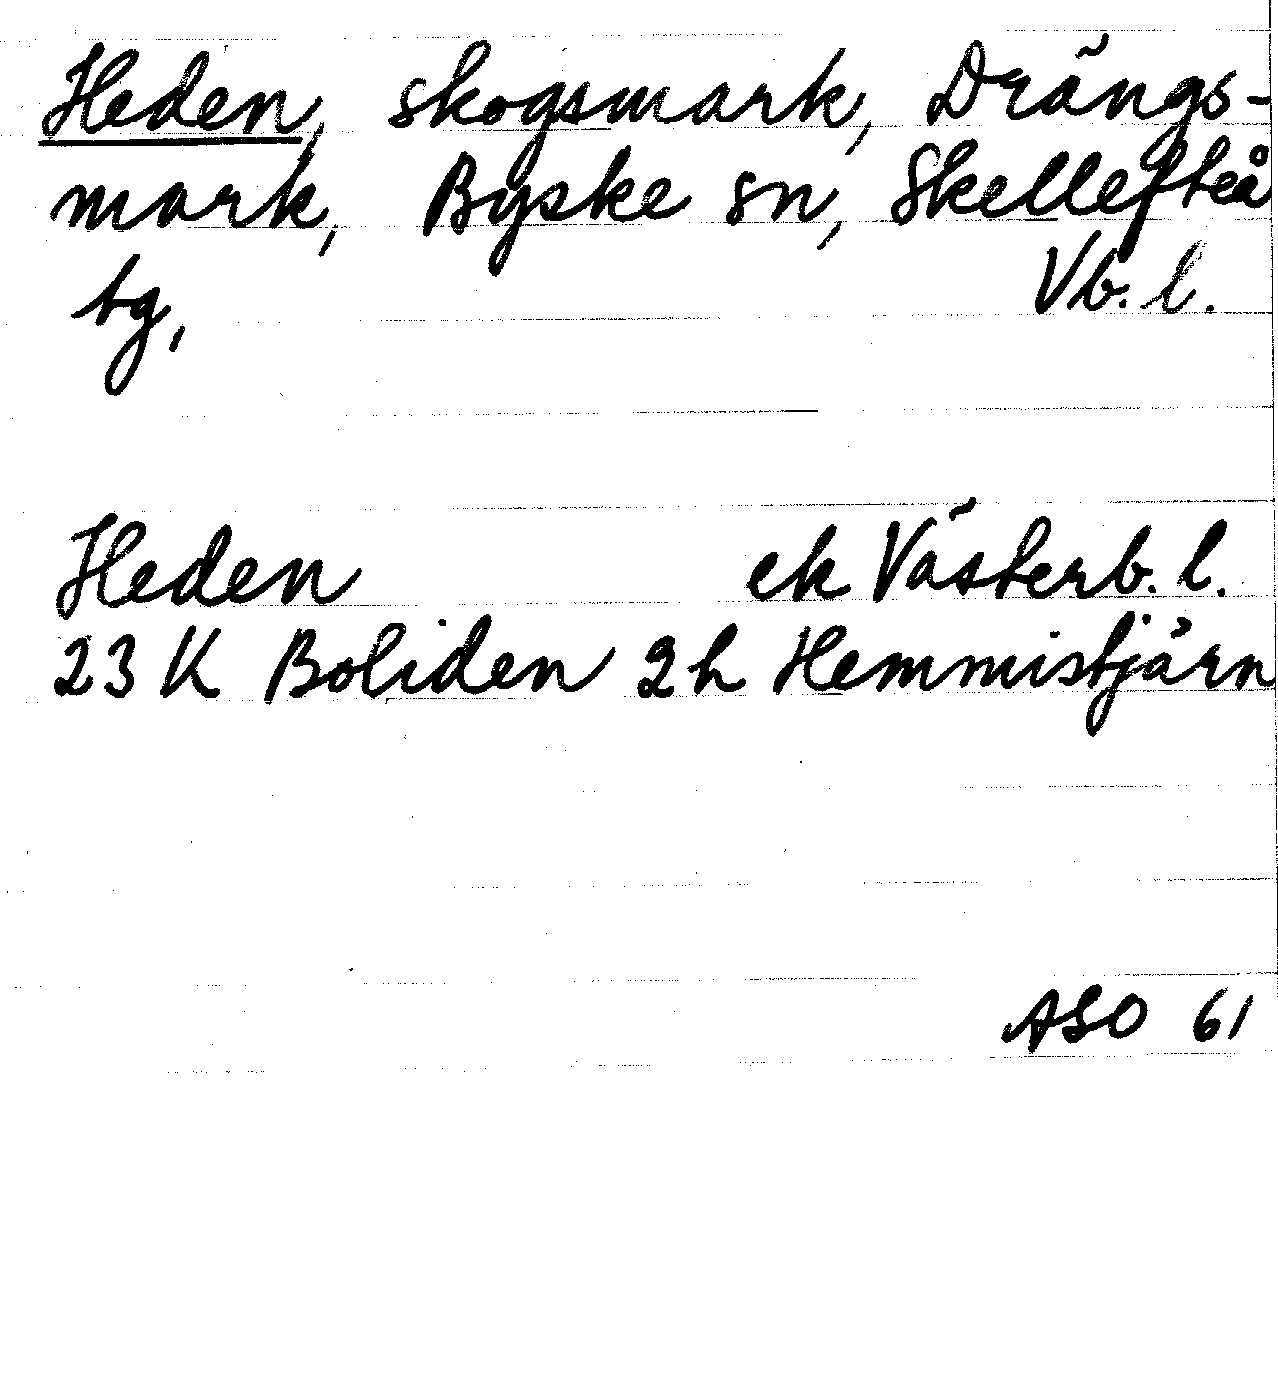 Heden, skogsmark, Drängs-
mark, Byske sn, Skellefteå
tg, Vb. l.
Heden ek Västerb. l.
23 K Boliden 2h Hemmistjärn
ASO 61